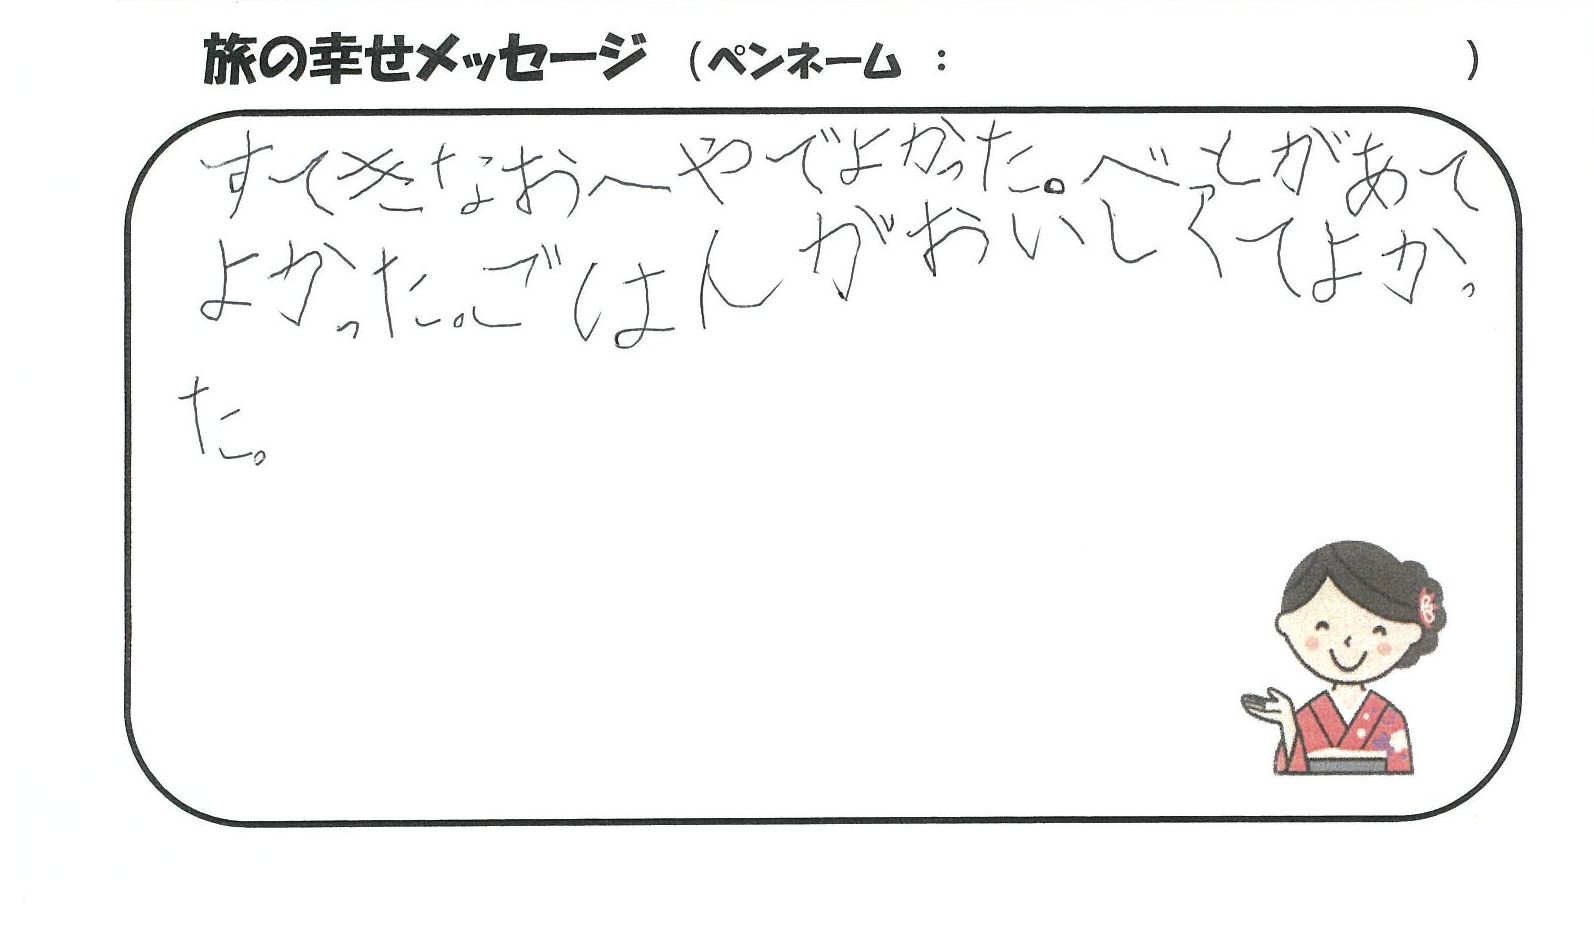 旅の幸せメッセージ （ペンネーム ： ）
すてきなおへやでよかった。べっとがあて
よかった。ごはんがおいしくてよかっ
た。